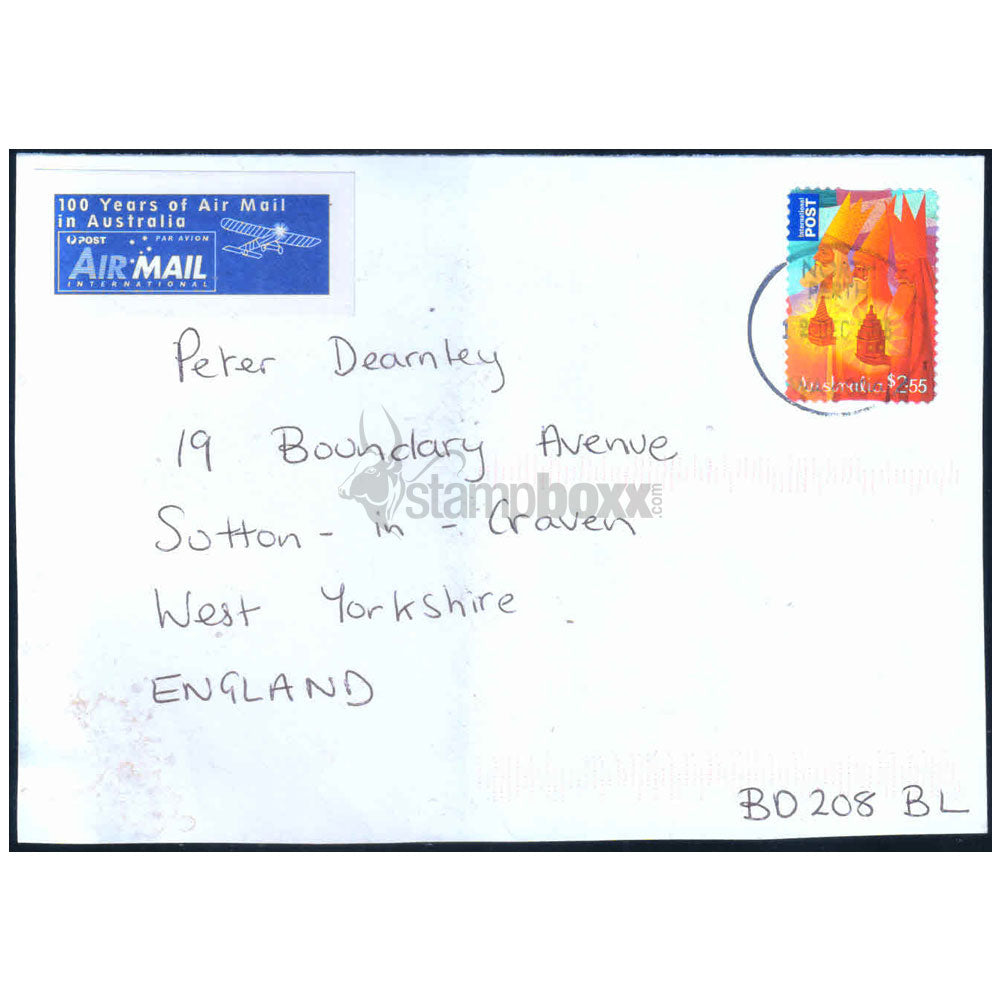 100 Years of Air Mail
in Australia
POST PAR AVION
AIR MAIL
INTERNATIONAL
International
POST
NORTH
PERTH
Australia $2.55
Peter Dearnley
19 Boundary Avenue
stampboxx.com
Sutton - in - Craven
West Yorkshire
ENGLAND
BD208 BL